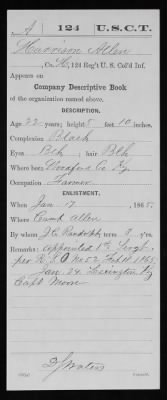 A | 124 | U.S.C.T.
Harrison Allen
, Co. H, 124 Reg't U. S. Col'd Inf.
Appears on
Company Descriptive Book
of the organization named above.
DESCRIPTION.
Age 22 years; height 5 feet 10 inches.
Complexion Black
Eyes Blk; hair Blk
Where born Woodford Co Ky.
Occupation Farmer
ENLISTMENT.
When Jan 17, 1865.
Where Camp Allen
By whom J C Randolph; term 3 y'rs.
Remarks: Appointed 1st Sergt
per R. S. O No 52 Sept 1865
Jan 24. Lexington Ky
Capt Moore